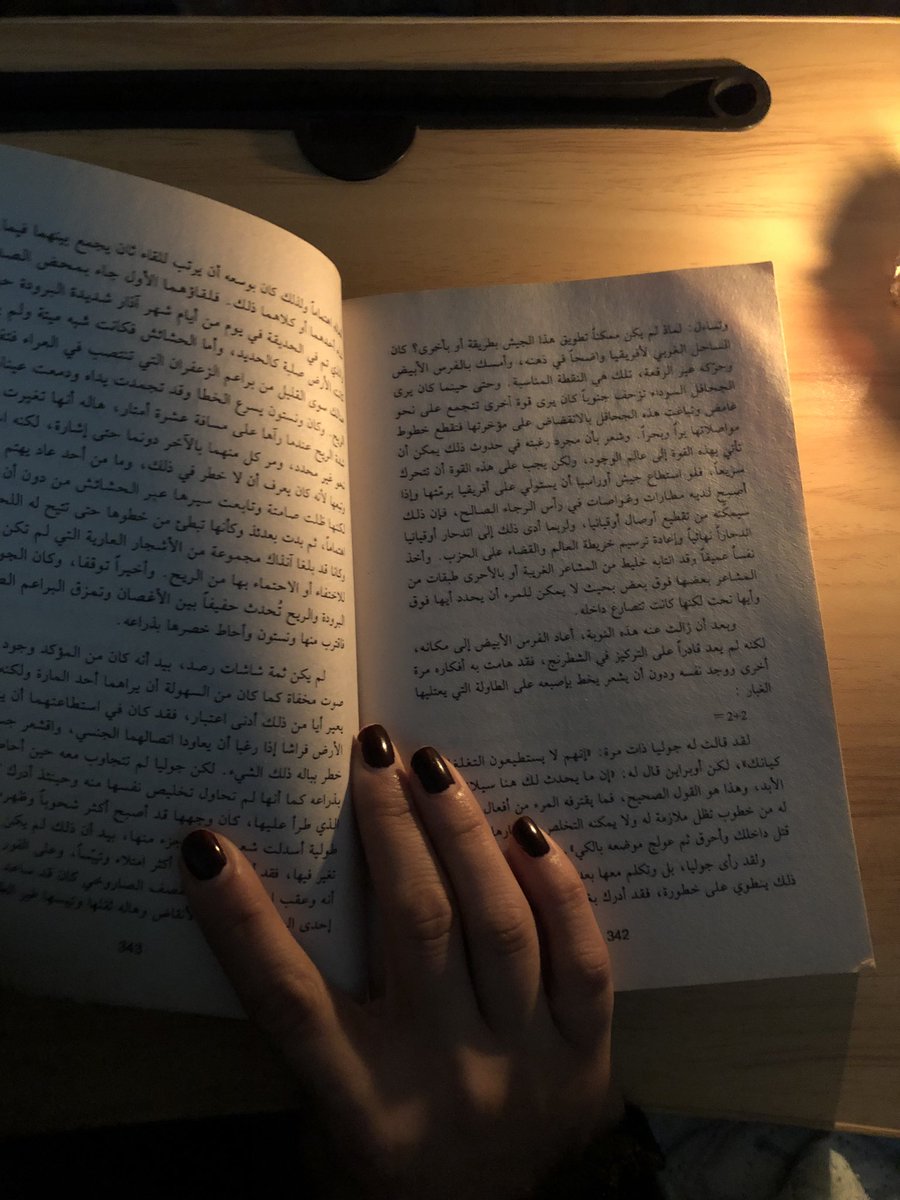 وتساءل: لماذا لم يكن ممكناً تطويق هذا الجيش بطريقة أو بأخرى؟ كان
الساحل الغربي لأفريقيا واضحاً في ذهنه، وأمسك بالفرس الأبيض
وحرّكه عبر الرقعة، تلك هي النقطة المناسبة. وحتى حينما كان يرى
الجحافل السوداء تزحف جنوباً كان يرى قوة أخرى تتجمع على نحو
غامض وتباغت هذه الجحافل بالانقضاض على مؤخرتها فتقطع خطوط
مواصلاتها براً وبحراً. وشعر بأن مجرد رغبته في حدوث ذلك يمكن أن
تأتي بهذه القوة إلى عالم الوجود، ولكن يجب على هذه القوة أن تتحرك
سريعاً. فلو استطاع جيش أوراسيا أن يستولي على أفريقيا برمّتها وإذا
أصبح لديه مطارات وغواصات في رأس الرجاء الصالح، فإن ذلك
سيمكنه من تقطيع أوصال أوقيانيا، ولربما أدى ذلك إلى اندحار أوقيانيا
اندحاراً نهائياً وإعادة ترسيم خريطة العالم والقضاء على الحزب. وأخذ
نفساً عميقاً وقد انتابه خليط من المشاعر الغريبة أو بالأحرى طبقات من
المشاعر بعضها فوق بعض بحيث لا يمكن للمرء أن يحدد أيها فوق
وأيها تحت لكنها كانت تتصارع داخله.
وبعد أن زالت عنه هذه النوبة، أعاد الفرس الأبيض إلى مكانه،
لكنه لم يعد قادراً على التركيز في الشطرنج، فقد هامت به أفكاره مرة
أخرى ووجد نفسه ودون أن يشعر يخط بإصبعه على الطاولة التي يعتليها
الغبار:
2+2 =
لقد قالت له جوليا ذات مرة: «إنهم لا يستطيعون
كيانك»، لكن أوبراين قال له: «إن ما يحدث لك هنا
الأبد، وهذا هو القول الصحيح، فما يقترفه المرء من أفعال
له من خطوب تظل ملازمة له ولا يمكنه التخلص
قتل داخلك وأحرق ثم عولج موضعه بالكي»
ولقد رأى جوليا، بل وتكلم معها
ذلك ينطوي على خطورة، فقد أدرك
342
اهتماماً ولذلك كان بوسعه أن يرتب للقاء ثان يجمع بينهما فيما
أحدهما أو كلاهما ذلك. فلقاؤهما الأول جاء بمحض
تم في الحديقة في يوم من أيام شهر آذار شديدة البرودة
الأرض صلبة كالحديد، وأما الحشائش فكانت شبه ميتة ولم
سوى القليل من براعم الزعفران التي تنتصب في العراء
الريح. وكان ونستون يسرع الخطا وقد تجمدت يداه ودمعت
الريح عندما رآها على مسافة عشرة أمتار، هاله أنها تغيرت
نحو غير محدد، ومر كل منهما بالآخر دونما حتى إشارة، لكنه
وتبعها لأنه كان يعرف أن لا خطر في ذلك، وما من أحد عاد يهتم
لكنها ظلت صامتة وتابعت سيرها عبر الحشائش من دون أن
اهتماماً، ثم بدت بعدئذ وكأنها تبطئ من خطوها حتى تتيح له
وكانا قد بلغا آنذاك مجموعة من الأشجار العارية التي لم تكن
للاختفاء أو الاحتماء بها من الريح. وأخيراً توقفا، وكان الجو
البرودة والريح تُحدث حفيفاً بين الأغصان وتمزق البراعم
فاقترب منها ونستون وأحاط خصرها بذراعه.
لم يكن ثمة شاشات رصد، بيد أنه كان من المؤكد وجود
صوت مخفاة كما كان من السهولة أن يراهما أحد المارة ولكنه
يعير أيا من ذلك أدنى اعتبار، فقد كان في استطاعتهما أن
الأرض فراشا إذا رغبا أن يعاودا اتصالهما الجنسي، واقشعر
خطر بباله ذلك الشيء. لكن جوليا لم تتجاوب معه حين
بذراعه كما أنها لم تحاول تخليص نفسها منه وحينئذ أدرك
الذي طرأ عليها، كان وجهها قد أصبح أكثر شحوباً وظهرت
طولية أسدلت منها، بيد أن ذلك لم يكن
تغير فيها، فقد أكثر امتلاء وتيبّساً. وعلى الفور
أنه وعقب الصاروخي كان قد ساعد
إحدى الأنقاض وهاله ثقلها وتيبسها غير
343